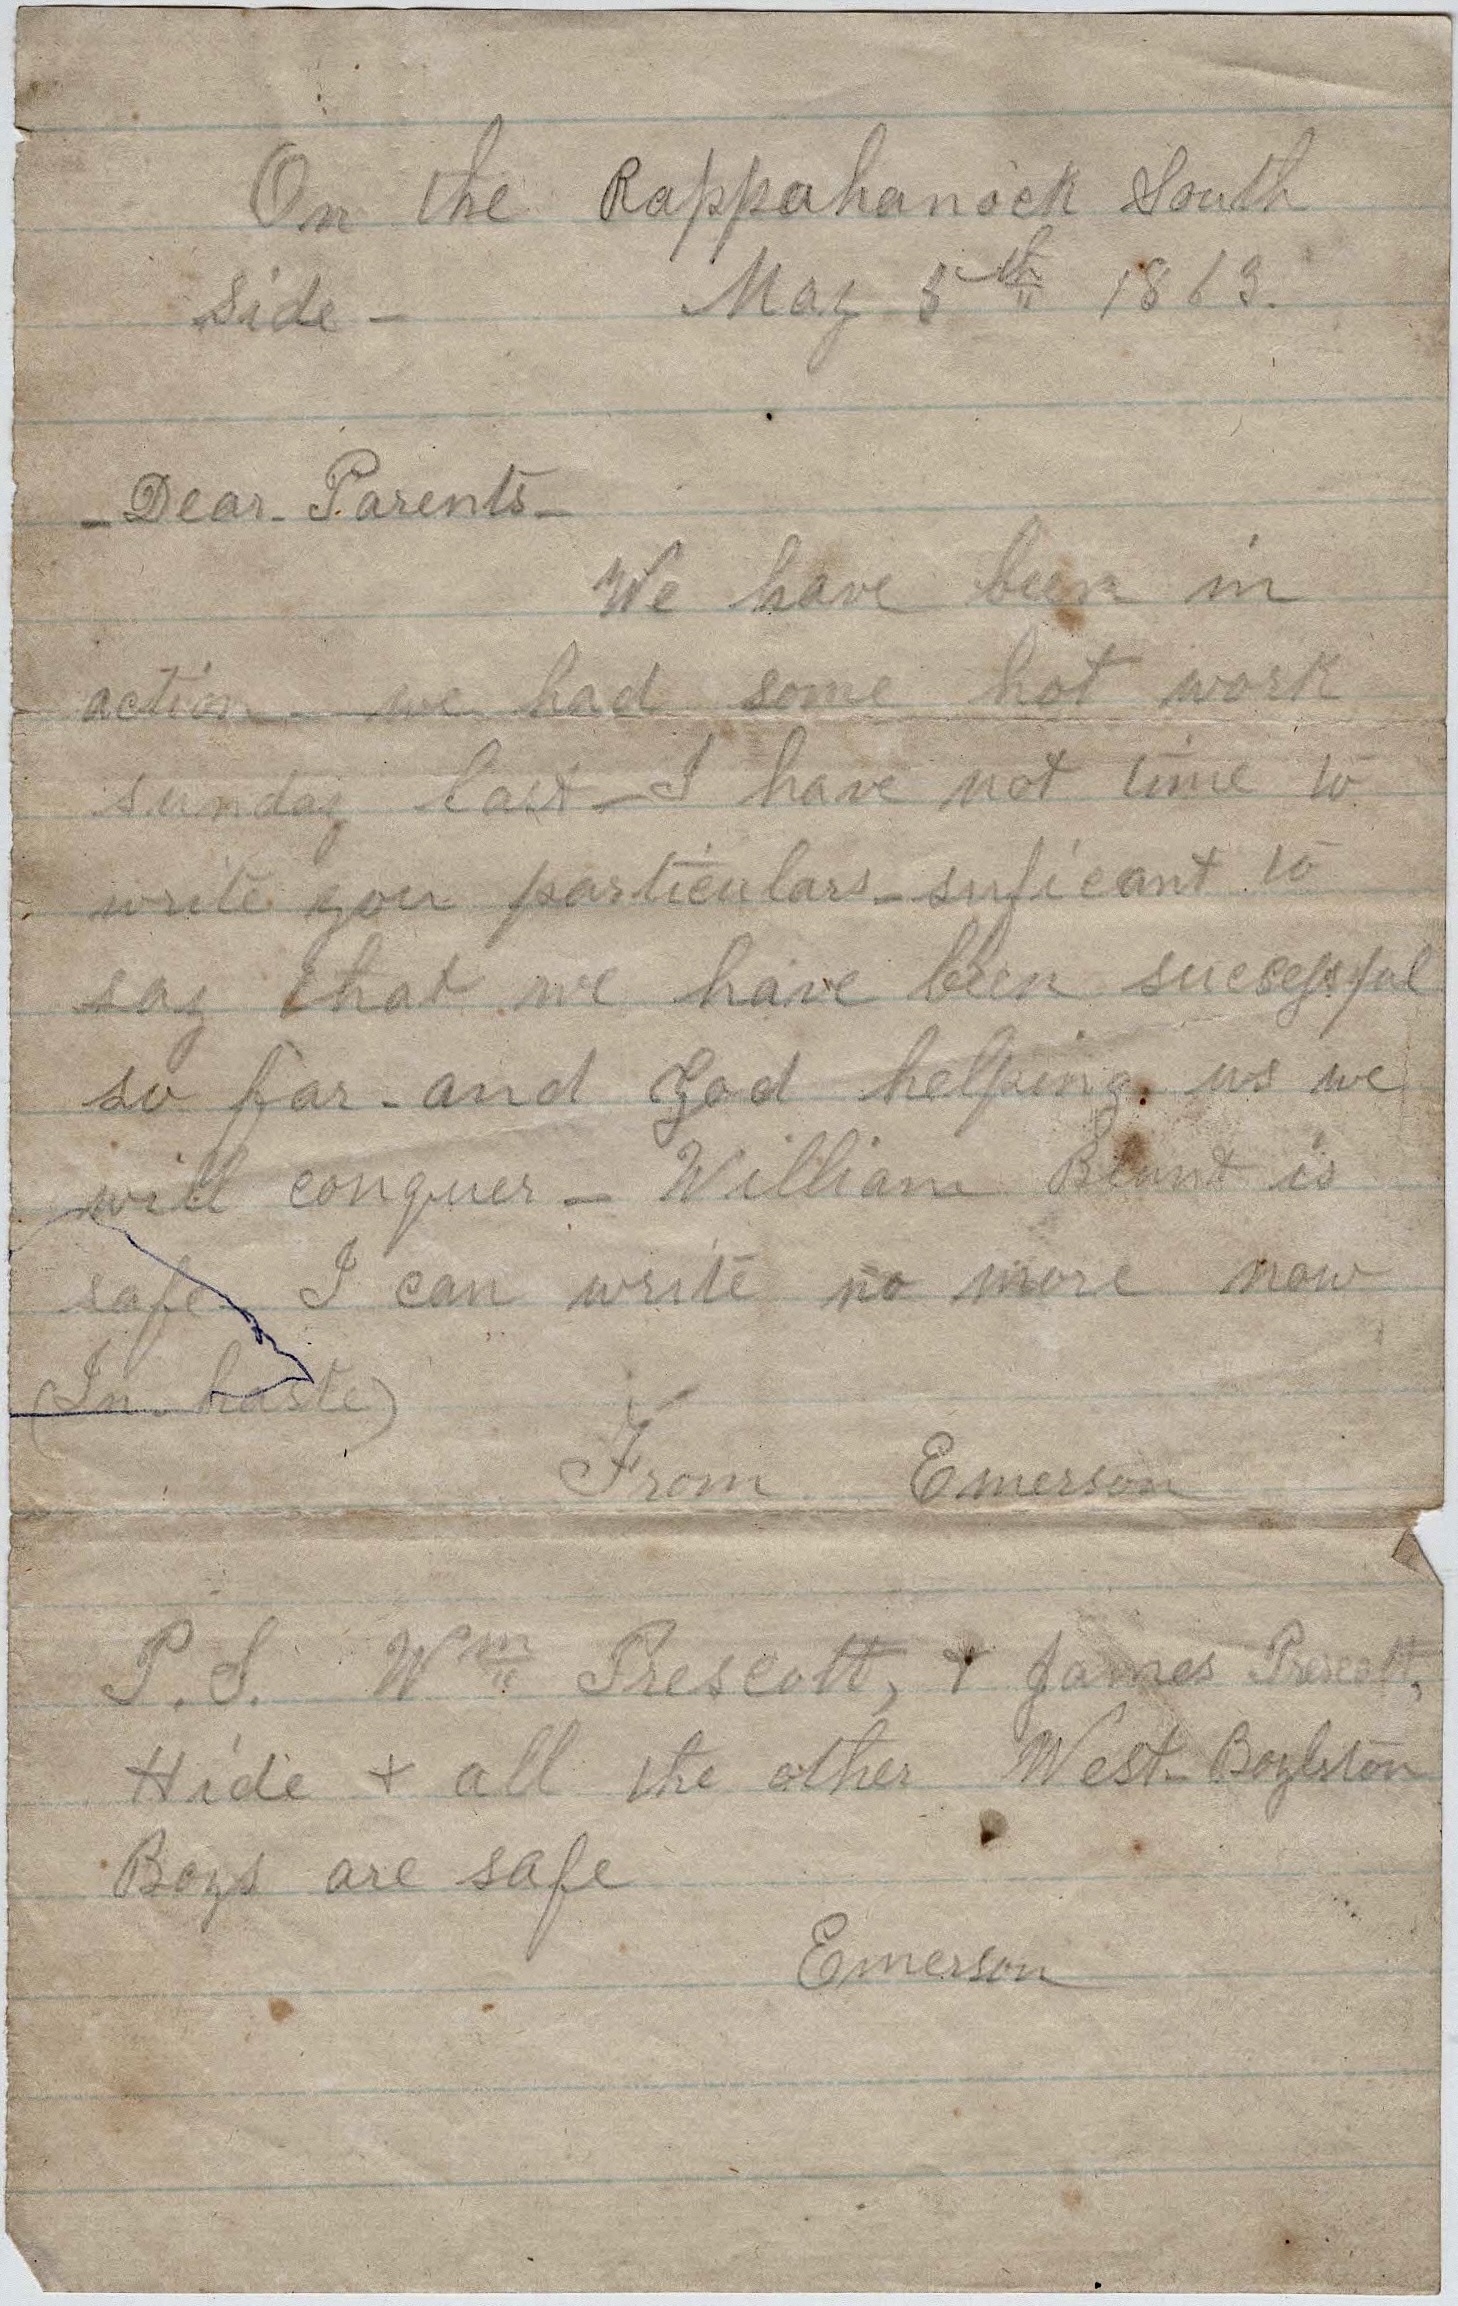 On the Rappahanock South
side - May 5th 1863.
- Dear - Parents -
We have been in
action - we had some hot work
sunday last - I have not time to
write you particulars - suficant to
say that we have been sucessful
so far - and God helping us we
will conquer - William Blunt is
safe - I can write no more now
(In haste)
From Emerson
P.S. Wm Prescott, + James Prescott,
Hide + all the other West - Boylston
Boys are safe
Emerson